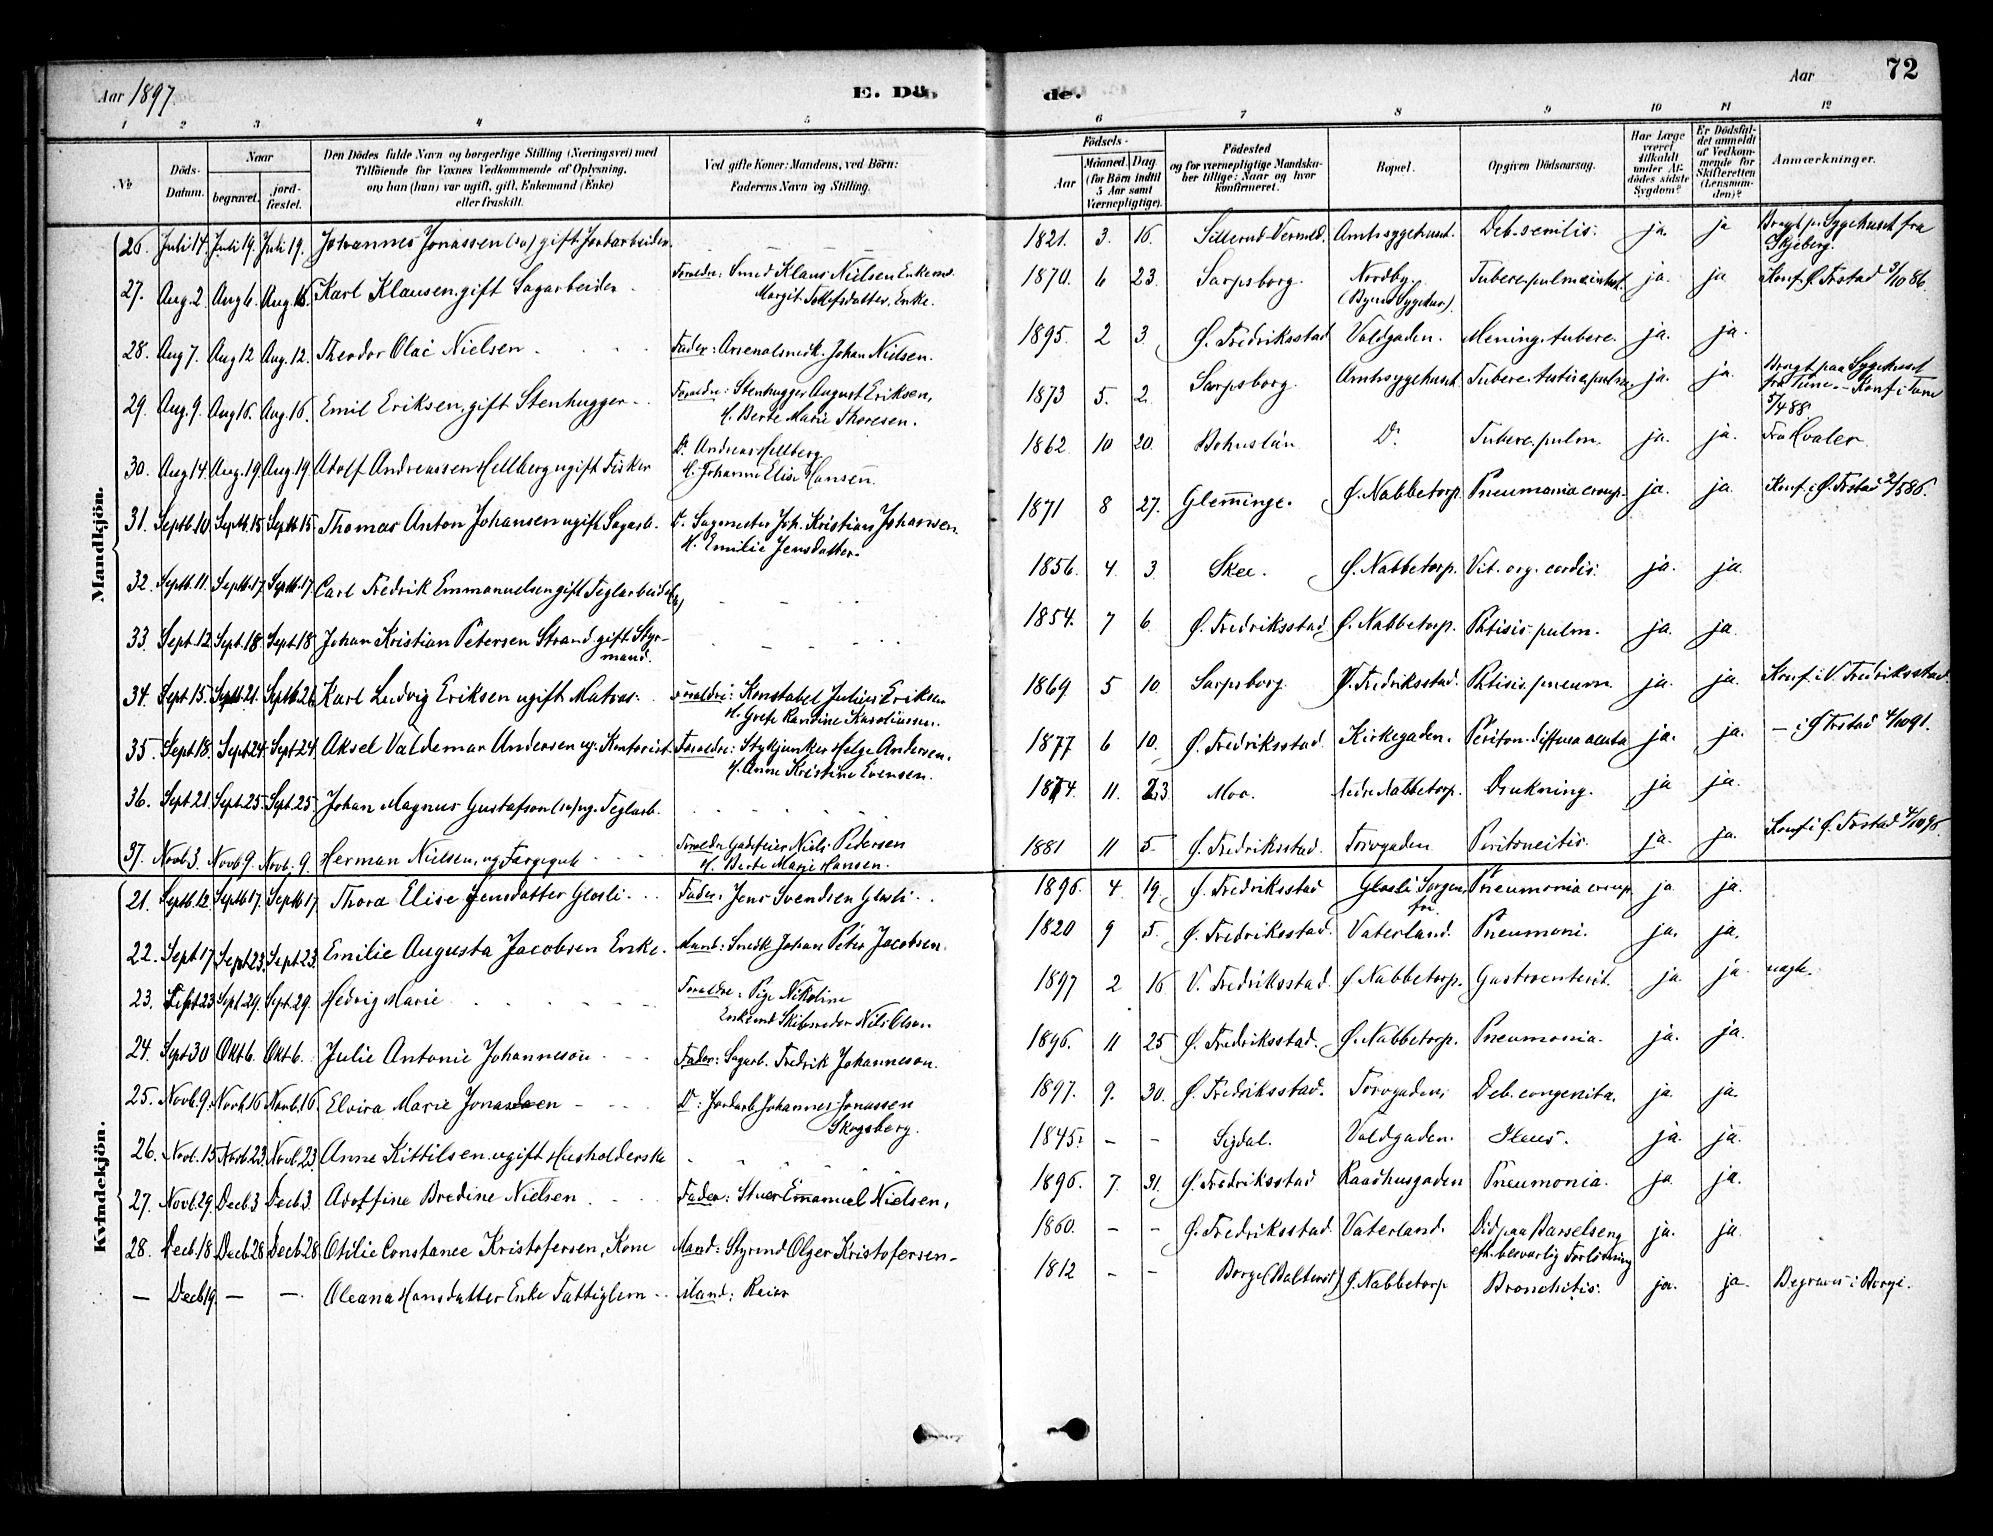 Aar 1897 E. Döde. Aar 72
1 2 3 4 5 6 7 8 9 10 11 12
No
Döds-Datum.
Naar
begravet.
jord-fæstet.
Den Dödes fulde Navn og borgerlige Stilling (Næringsvei) med
Tilföiende for Voxnes Vedkommende af Oplysning,
om han (hun) var ugift, gift, Enkemand (Enke)
eller fraskilt.
Ved gifte Koner: Mandens, ved Börn:
Faderens Navn og Stilling.
Födsels-
Aar
Maaned. Dag
(for Börn indtil
5 Aar samt
Værnepligtige).
Födested
og for værnepligtige Mandska-
ber tillige: Naar og hvor
konfirmeret.
Bopæl.
Opgiven Dödsaarsag.
Har Læge
været
tilkaldt
under Af-
dödes sidste
Sygdom?
Er Dödsfal-
det anmeldt
af Vedkom-
mende for
Skifteretten
(Lensman-
den)?
Anmærkninger.
Mandkjön.
26. Juli 14. Juli 19. Juli 19. Johannes Jonassen (sv) gift Jordarbeider. 1821. 3. 16. Sillerud Vermld. Amtssygehuset. Deb. senilis. ja. ja Bragt p. Sygehuset fra
Skjeberg.
27. Aug. 2 Aug 6. Aug. 16. Karl Klausen, gift Sagarbeider Forældre: Smed Klaus Nielsen Enkemd. 1870. 6 23. Sarpsborg. Nordby. Tuberc. pulm. ja. ja Konf. Ø. Frstad 3/10 86.
Margit Tollefsdatter, Enke. (Byens Sygehus).
28. Aug 7. Aug 12 Aug. 12. Theodor Olai Nielsen Fader: Arsenalsmedk. Johan Nielsen. 1895. 2 3. Ø. Fredriksstad Voldgaden. Mening. tuberc. ja. ja.
29. Aug. 9. Aug 16. Aug. 16. Emil Eriksen, gift Stenhugger Forældre: Stenhugger August Eriksen, 1873 5. 2. Sarpsborg. Amtssygehuset. ja. ja. Bragt paa Sygehuset
H. Berte Marie Thoresen. fra Tune. – Konf. i Tune
5/4 88.
30. Aug 14 Aug. 19 Aug. 19 Adolf Andreassen Hellberg ugift Fisker Do. Andreas Hellberg 1862 10 20. Bohuslän Do. Tuberc. pulm. ja. ja. Fra Hvaler.
H. Johanne Elise Hansen.
31. Septb. 10 Septb. 15 Septb. 15. Thomas Anton Johansen ugift Sagarb. Do. Sagmester Joh. Kristian Johansen. 1871 8 27. Glemminge. Ø. Nabbetorp. Pneumonia croup. ja. ja. Konf. i Ø. Frstad 2/5 86.
H. Emilie Jensdatter.
32. Septb. 11. Septb. 17. Septb. 17. Carl Fredrik Emmanuelsen gift Teglarbeider (sv) 1856. 4. 3. Skee. Ø. Nabbetorp. Vit. org. cordis. ja. ja.
33. Sept. 12. Sept. 18. Sept. 18 Johan Kristian Petersen Strand, gift Styr-
mand. 1854. 7 6. Ø. Fredriksstad. Ø. Nabbetorp. Phtisis pulm. ja. ja.
34. Sept. 15. Septb. 21. Septb. 21. Karl Ludvig Eriksen ugift Matros. Forældre: Konstabel Julius Eriksen 1869 5 10. Sarpsborg. V. Fredriksstad. Phtisis pneum. ja. ja. Konf. i V. Fredriksstad.
35. Sept. 18. Sept 24. Sept 24. Aksel Valdemar Andersen ug. Kontorist. Forældre: Stykjunker Helge Andersen. 1877 6 10. Ø. Fredriksstad. Kirkegaden. Periton. diffusa acuta ja. ja. – i Ø Frstad 4/10 91.
H. Anne Kristine Evensen.
36. Sept. 21. Sept. 25. Sept. 25. Johan Magnus Gustafson (sv) ug. Teglarb. 1874. 11. 23. Moo. Nedre Nabbetorp. Drukning. ja ja.
37. Novb. 3. Novb. 9. Novb. 9. Herman Nielsen, ug. Færgegut Forældre Niels Petersen 1881 11 5. Ø. Fredriksstad. Torvgaden Peritoneitis. ja. ja. Konf. i Ø. Frstad 4/10 95
H. Berte Marie Hansen.
Kvindekjön.
21. Septb. 12 Septb. 17. Septb. 17 Thora Elise Jensdatter Glosli Fader: Jens Svendsen Glosli 1896. 4 19. Ø. Fredriksstad Glosli Pneumonia croup. ja ja.
22. Sept 17 Sept 23. Sept. 23. Emilie Augusta Jacobsen Enke. Mand: Smedk Johan Peter Jacobsen. 1820 9 5. Ø. Fredriksstad. Vaterland. Pneumoni. ja. ja.
23. Sept 23 Sept. 29. Sept. 29. Hedvig Marie Forældre: Pige Nikoline 1897 2 16 V. Fredriksstad. Ø Nabbetorp. Gastroenterit. ja ja uægte.
Enkemd Skibsreder Nils Olsen
24. Sept 30 Okt 6. Okt 6. Julie Antonie Johanneson Fader: Sagarb. Fredrik Johanneson. 1896. 11 25 Ø. Fredriksstad. Ø. Nabbetorp. Pneumonia. ja. ja.
25. Novb. 9. Novb. 16 Novb. 16. Elvira Marie Jonassen Do: Jordarb. Johannes Jonassen 1897. 9. 30. Ø. Fredriksstad. Torvgaden. Deb. congenita. ja. ja.
Skogsberg.
26. Novb. 15. Novb. 23. Novb. 23. Anne Kittilsen ugift Husholderske 1845. – – Sigdal. Voldgaden. Ileus. ja. ja.
27. Novb. 29. Decb. 3 Decb. 3. Adolfine Bredine Nielsen Fader: Stuer Emanuel Nielsen. 1896. 7. 31. Ø. Fredriksstad Raadhusgaden Pneumonia. ja ja.
28. Decb. 18 Decb 28 Decb. 28 Otilie Constance Kristofersen, Kone Mand: Styrmd Olger Kristofersen 1860. – – Ø. Fredriksstad. Vaterland. Död paa Barselseng ja. ja.
eft. besværlig Forlösning
– Decb 19. – – Oleana Hansdatter Enke Fattiglem Mand: Reier 1812 – – Borge Ø. Nabbetorp Bronchitis. ja. ja. Begraves i Borge.